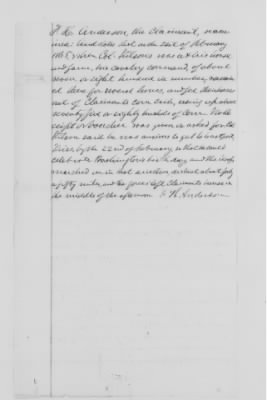 F. H. Anderson the Claimant, same
under date that on the 22nd of February
1865 when Col. Wilson was at his house
and farm, his cavalry command of about
seven or eight hundred in number, remained
there for several hours, and fed themselves
out of Claimants corn crib, using up about
seventy five or eighty bushels of corn. No re-
ceipt or voucher was given or asked for. Col.
Wilson said he was anxious to get to
by the 22nd of February, so that he could
celebrate Washington's birthday, and the troops
marched in that direction distant about forty
or fifty miles, and the force left Claimants house in
the middle of the afternoon. F. H. Anderson